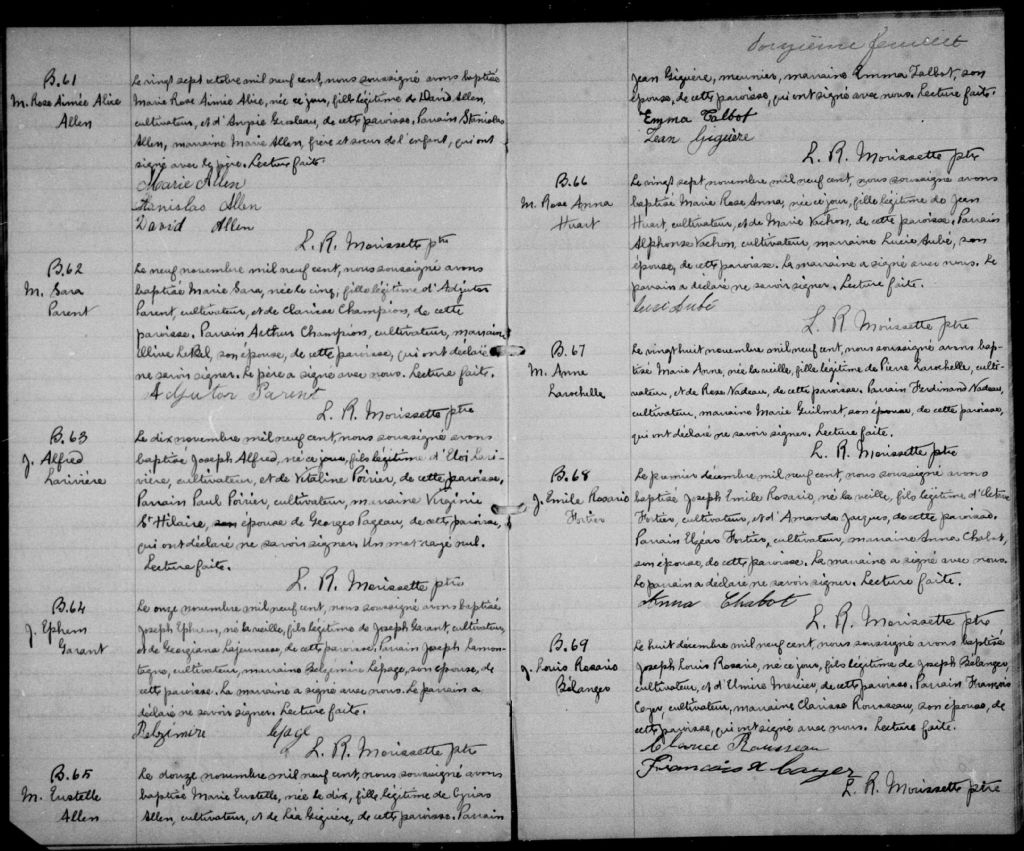 B.61
M. Rose Aimée Alice
Allen
Le vingt sept octobre mil neuf cent, nous soussigné avons baptisé
Marie Rose Aimée Alice, née ce jour, fille légitime de David Allen,
cultivateur, et d' Grosleau, de cette paroisse. Parrain Stanislas
Allen, marraine Marie Allen, frère et soeur de l'enfant, qui ont
signé avec le père. Lecture faite.
Marie Allen
Stanislas Allen
David Allen
L. R. Morissette ptre
B.62
M. Sara
Parent
Le neuf novembre mil neuf cent, nous soussigné avons
baptisé Marie Sara, née le cinq, fille légitime d'Adjutor
Parent, cultivateur, et de Clarisse Champion, de cette
paroisse. Parrain Arthur Champion, cultivateur, marraine
son épouse, de cette paroisse, qui ont déclaré
ne savoir signer. Le père a signé avec nous. Lecture faite.
Adjutor Parent
L. R. Morissette ptre
B.63
J. Alfred
Larivière
Le dix novembre mil neuf cent, nous soussigné avons
baptisé Joseph Alfred, né ce jour, fils légitime d'Eloi Lari-
vière, cultivateur, et de Vitaline Poirier, de cette paroisse,
Parrain Paul Poirier, cultivateur, marraine Virginie
St Hilaire, son épouse de Georges Pageau, de cette paroisse,
qui ont déclaré ne savoir signer. Un mot rayé nul.
Lecture faite.
L. R. Morissette ptre
B.64
J. Ephrem
Garant
Le onze novembre mil neuf cent, nous soussigné avons baptisé
Joseph Ephrem, né la veille, fils légitime de Joseph Garant, cultivateur,
et de Georgiana Lajeunesse, de cette paroisse. Parrain Joseph Lamon-
tagne, cultivateur, marraine Belzemire Lepage, son épouse, de
cette paroisse. La marraine a signé avec nous. Le parrain a
déclaré ne savoir signer. Lecture faite.
Belzimire Lepage
L. R. Morissette ptre
B.65
M. Eustelle
Allen
Le douze novembre mil neuf cent, nous soussigné avons
baptisé Marie Eustelle, née le dix, fille légitime de Cyrias
Allen, cultivateur, et de Léa Giguère, de cette paroisse. Parrain
onzième feuillet
Jean Giguère, meunier, marraine Emma Talbot, son
épouse, de cette paroisse, qui ont signé avec nous. Lecture faite.
Emma Talbot
Jean Giguère
L. R. Morissette ptre
B.66
M. Rose Anna
Huart
Le vingt sept novembre mil neuf cent, nous soussigné avons
baptisé Marie Rose Anna, née ce jour, fille légitime de Jean
Huart, cultivateur, et de Marie Vachon, de cette paroisse. Parrain
Alphonse Vachon, cultivateur, marraine Lucie Aubé, son
épouse, de cette paroisse. La marraine a signé avec nous. Le
parrain a déclaré ne savoir signer. Lecture faite.
Lusi Aubé
L. R. Morissette ptre
B.67
M. Anne
Larochelle
Le vingt huit novembre mil neuf cent, nous soussigné avons bap-
tisé Marie Anne, née la veille, fille légitime de Pierre Larochelle, culti-
vateur, et de Rose Nadeau, de cette paroisse. Parrain Ferdinand Nadeau,
cultivateur, marraine Marie Guilmet, son épouse, de cette paroisse,
qui ont déclaré ne savoir signer. Lecture faite.
L. R. Morissette ptre
B.68
J. Emile Rosario
Fortier
Le premier décembre mil neuf cent, nous soussigné avons
baptisé Joseph Emile Rosario, né la veille, fils légitime d'
Fortier, cultivateur, et d'Amanda Jacques, de cette paroisse.
Parrain Elzéar Fortier, cultivateur, marraine Anna Chabot,
son épouse, de cette paroisse. La marraine a signé avec nous.
Le parrain a déclaré ne savoir signer. Lecture faite.
Anna Chabot
L. R. Morissette ptre
B.69
J. Louis Rosario
Bélanger
Le huit décembre mil neuf cent, nous soussigné avons baptisé
Joseph Louis Rosario, né ce jour, fils légitime de Joseph Bélanger,
cultivateur, et d'Umire Mercier, de cette paroisse. Parrain François
Cayer, cultivateur, marraine Clarisse Rousseau, son épouse, de
cette paroisse, qui ont signé avec nous. Lecture faite.
Clarice Rousseau
Francois X Cayer
L. R. Morissette ptre